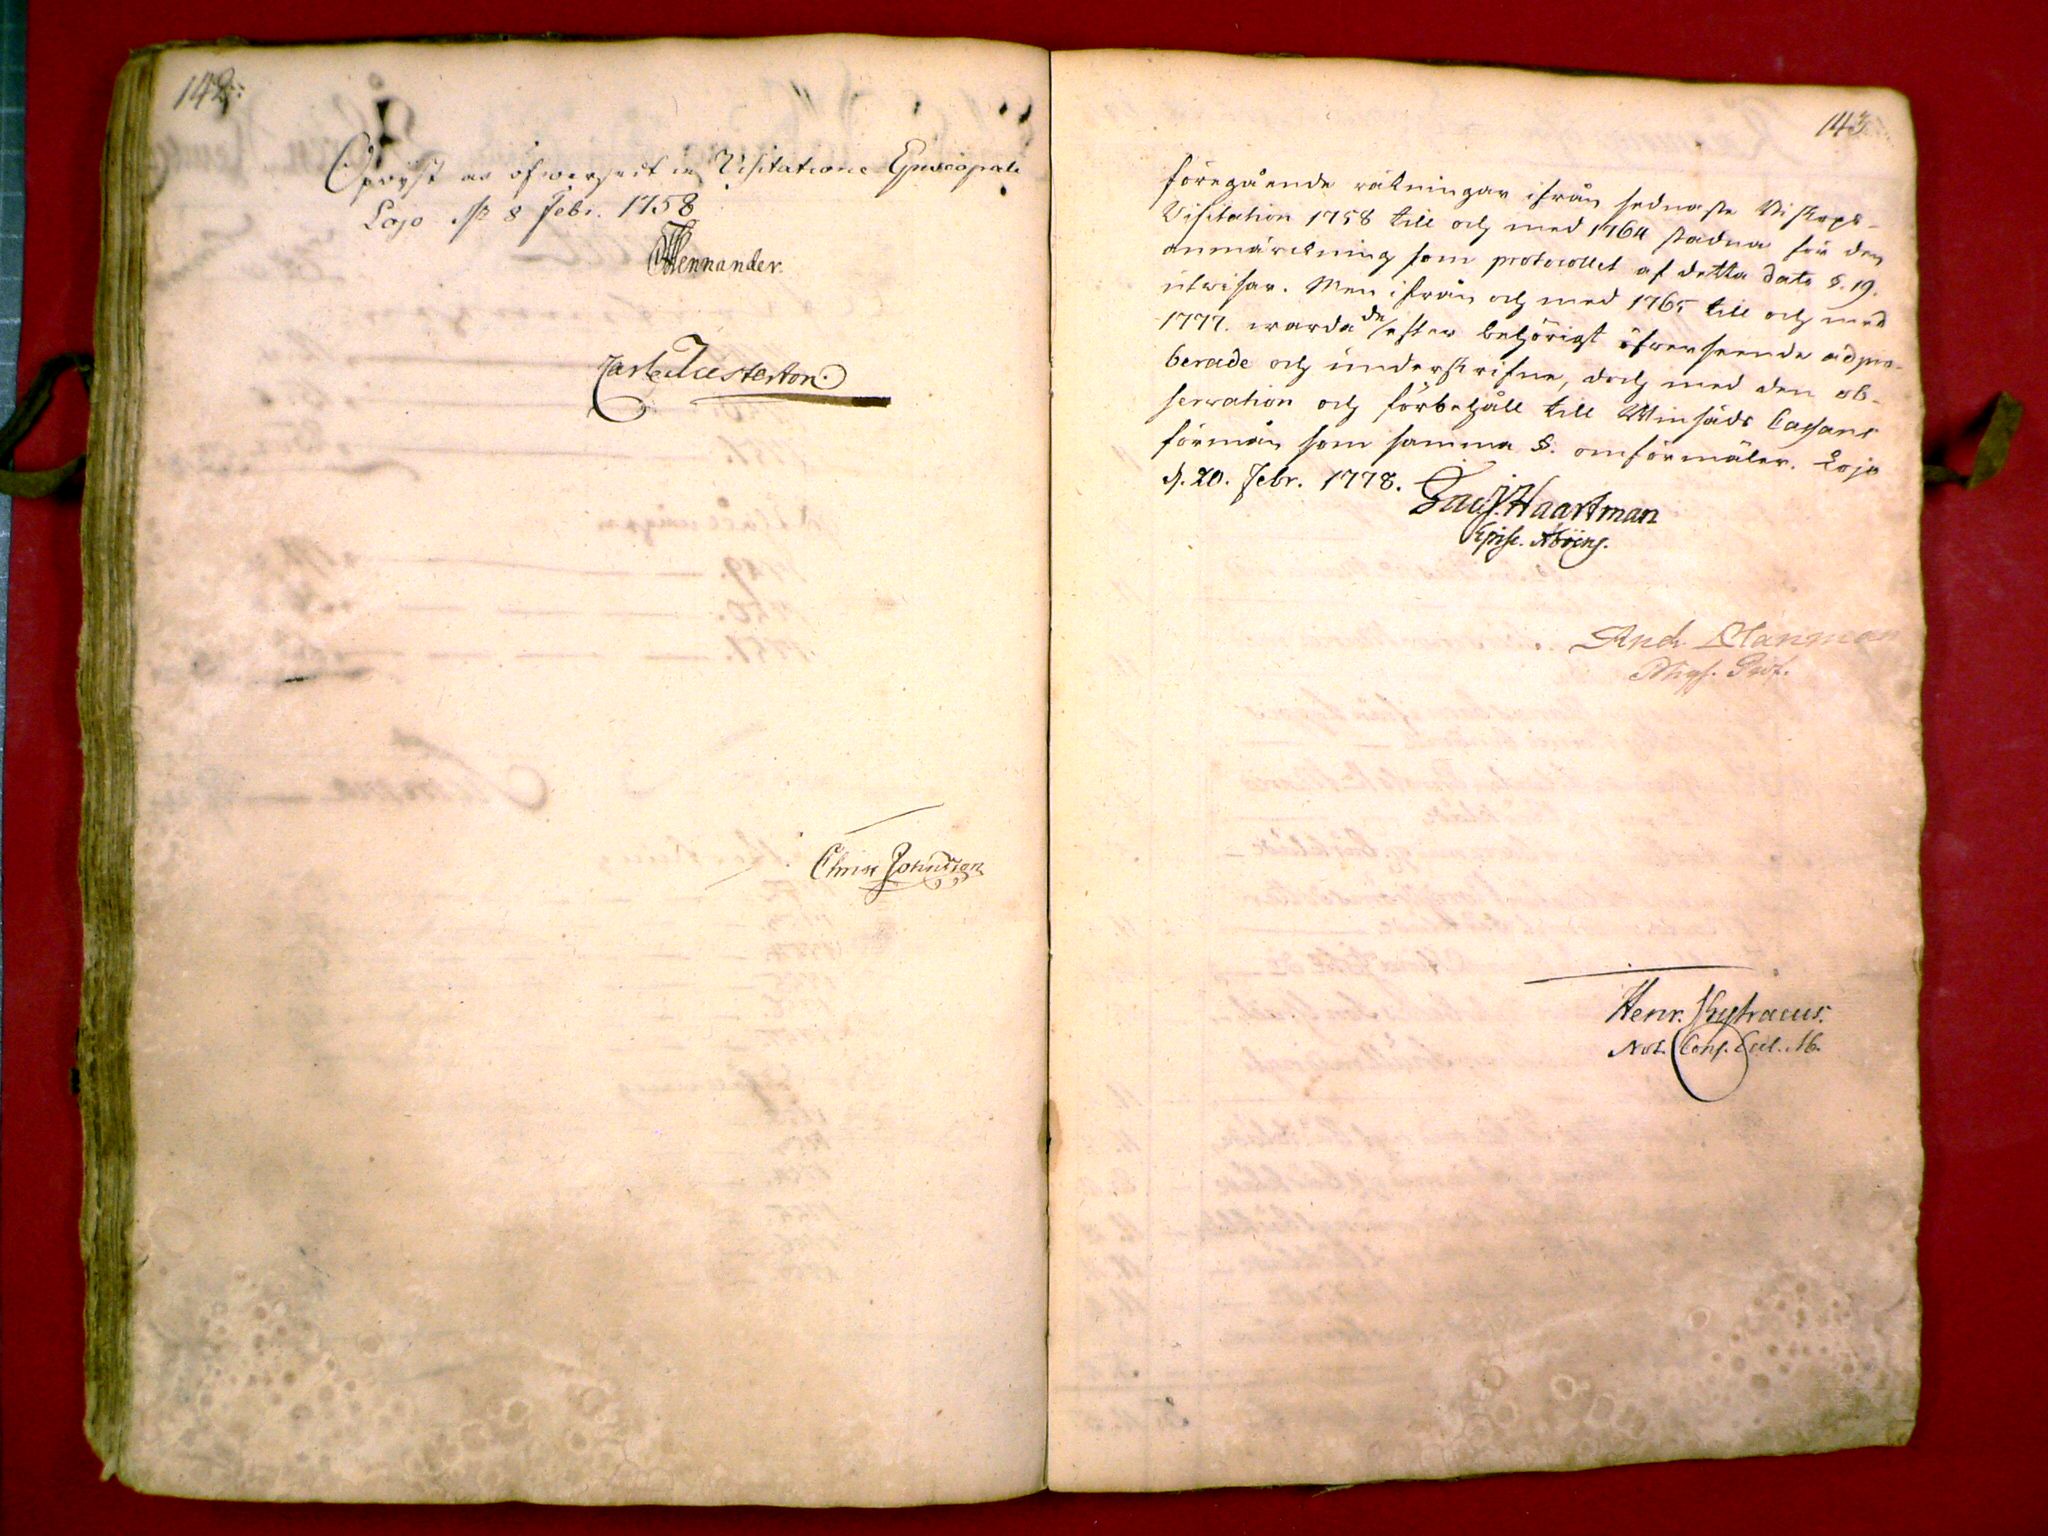 142.
Opläst at öfwersedt in Visitatione Episcopali
Lojo d. 8 Febr. 1758
Mennander.
Carl Mesterton.
Christ Johnsson
143.
föregående räkningar ifrån sednaste Biskops-
Visitation 1758 till och med 1764 stadna för den
anmärckning som protocollet af detta dato §. 19.
utwisar. Men ifrån och med 1765 till och med
1777. warda de efter behörigt öfwerseende adpro-
berade och underskrifne, doch med den ob-
servation och förbehåll till Winsäds Cassans
förmån som samma §. omförmäler. Lojo
d. 20. Febr. 1778.
Jac. Haartman
Episc. Aboens.
And. Planman
Phys. Prof.
Henr.
Not. Cons. Eccl. Ab.